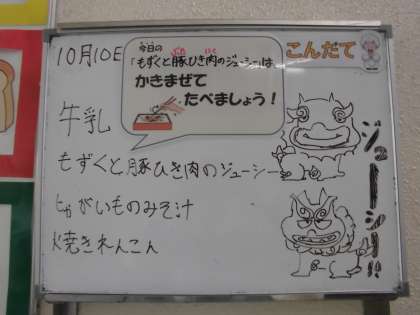 10月10日
今日の
「もずくと豚ひき肉のジューシー」は
かきまぜて
たべましょう！
こんだて
牛乳
もずくと豚ひき肉のジューシー
じゃがいものみそ汁
焼きれんこん
ジューシー!!